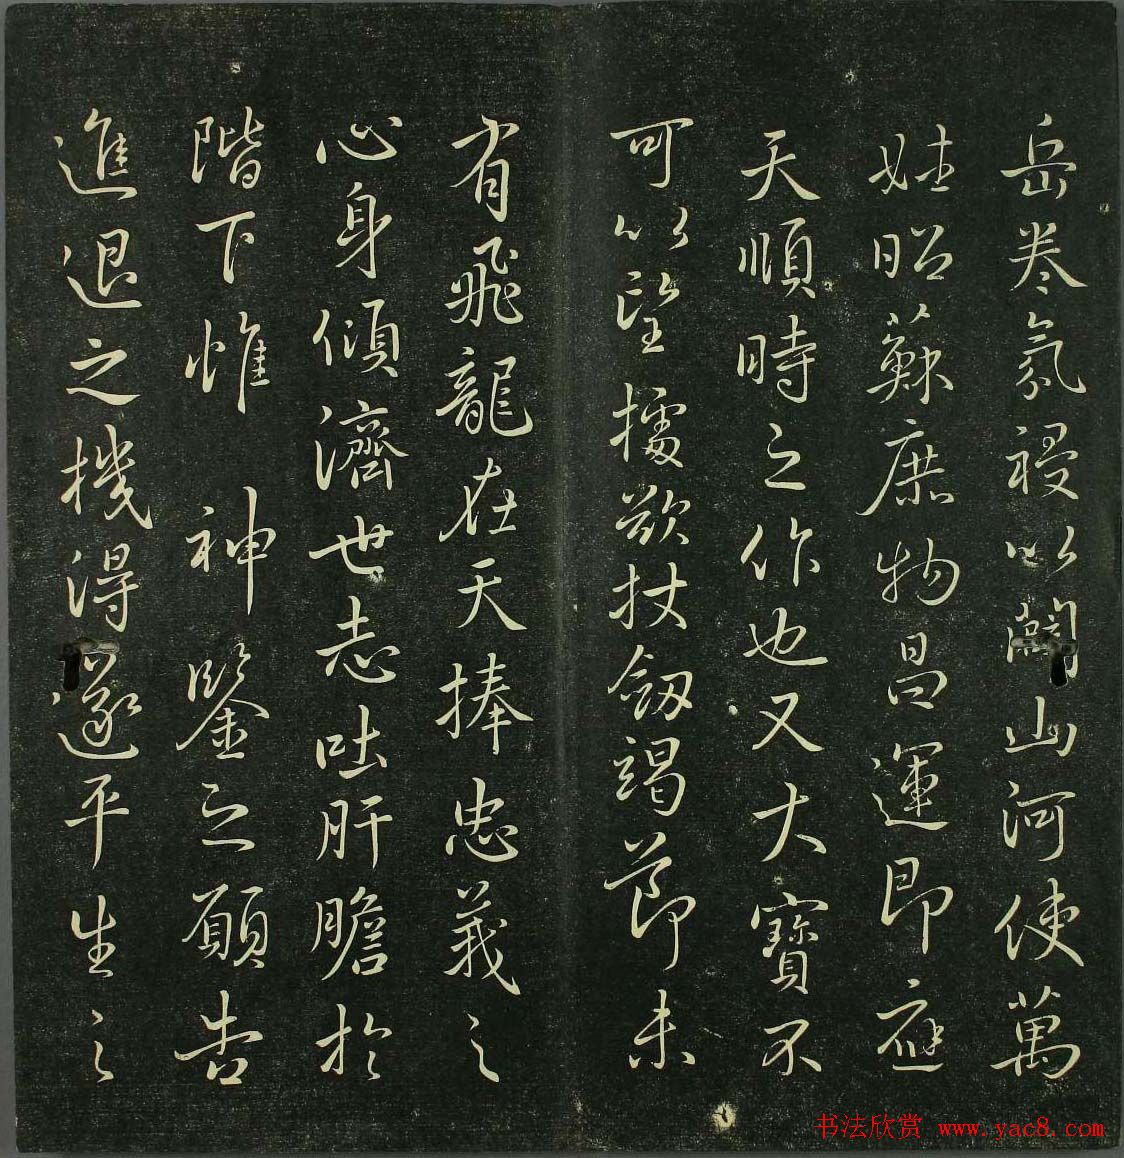 岳卷氛祲以闢山河使萬
姓昭蘇庶物昌運即應
天順時之作也又大寶不
可以望據欲扙劒竭節未
有飛龍在天捧忠義之
心身傾濟世志吐肝膽於
階下惟神鑒之願告
進退之機得遂平生之
书法欣赏 www.yac8.com